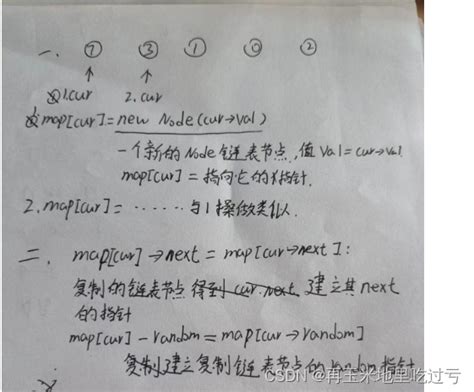 一、 ⑦ ③ ① ⓪ ②
1.cur 2.cur
map[cur]=new Node(cur→val)
一个新的Node链表节点,值val=cur→val
map[cur]=指向它的指针.
2.map[cur]=······与1操做类似.
二、 map[cur]→next=map[cur→next]:
复制的链表节点 建立其next
的指针
map[cur]-random=map[cur→random]
复制建立复制链表节点的random指针
CSDN @再玉米地里吃过亏